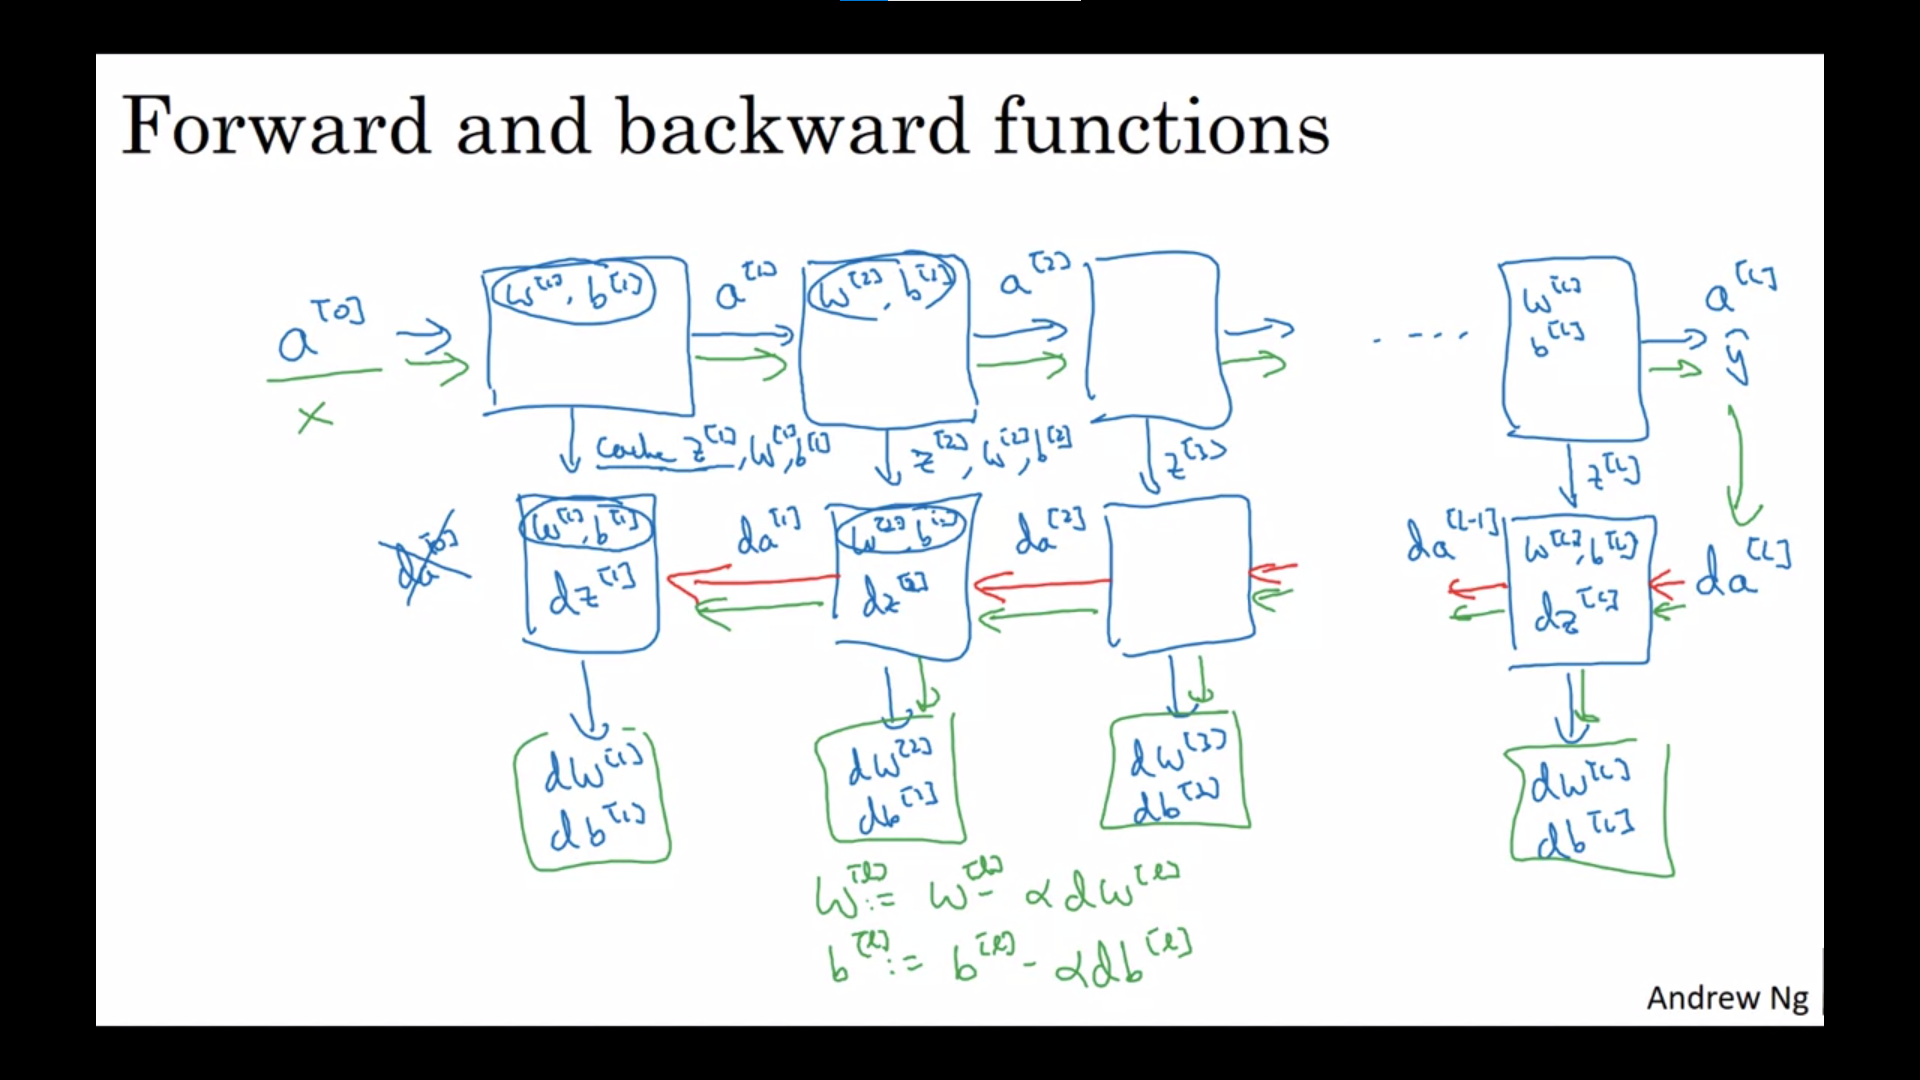 Forward and backward functions
a^[0] w^[1], b^[1] a^[1] w^[2], b^[1] a^[2] w^[L] a^[L]
x b^[L] ŷ
cache z^[1], w^[1], b^[1] z^[2], w^[2], b^[2] z^[3] z^[L]
da^[0] w^[1], b^[1] da^[1] w^[2], b^[2] da^[2] da^[L-1] w^[L], b^[L] da^[L]
dz^[1] dz^[2] dz^[L]
dw^[1] dw^[2] dw^[3] dw^[L]
db^[1] db^[2] db^[3] db^[L]
w^[l] := w^[l] - αdw^[l]
b^[l] := b^[l] - αdb^[l]
Andrew Ng